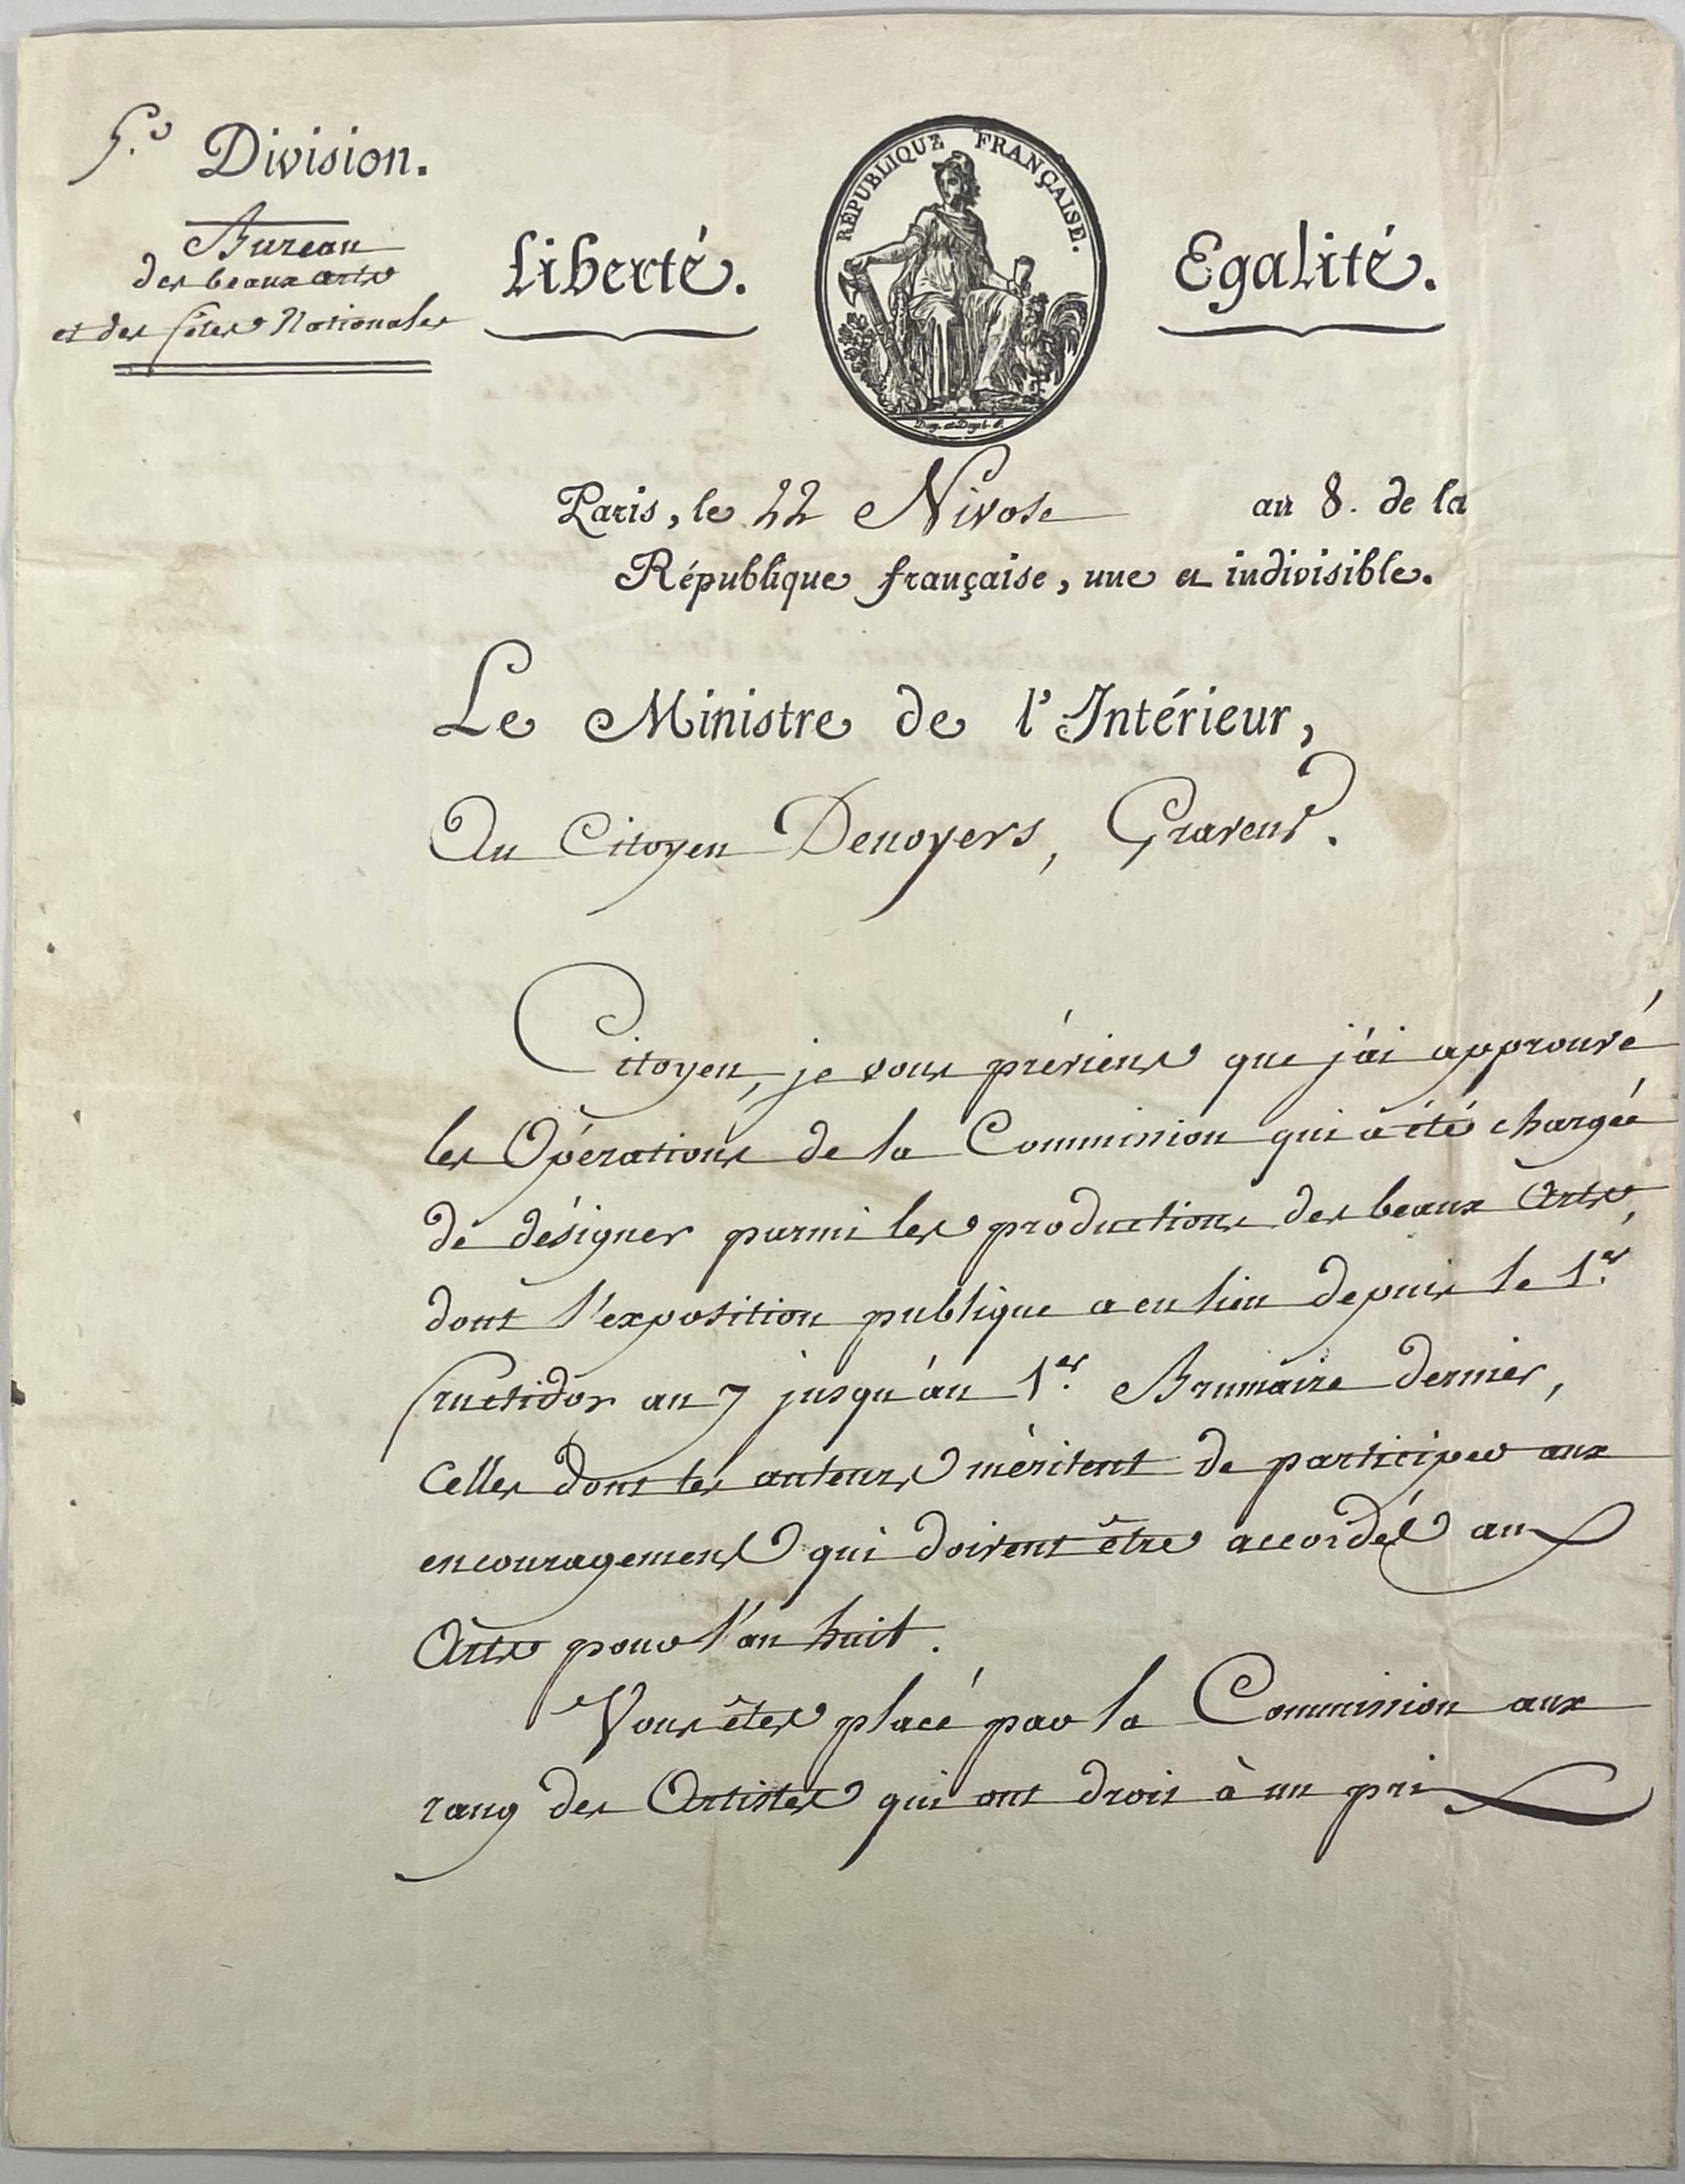 5.e Division.
Bureau
des beaux arts
et des fêtes Nationales
Liberté.
RÉPUBLIQUE FRANÇAISE.
Egalité.
Paris, le 22 Nivose an 8. de la
République française, une et indivisible.
Le Ministre de l'Intérieur,
Au Citoyen Denoyers, Graveur.
Citoyen, je vous préviens que j'ai approuvé
les Opérations de la Commission qui a été chargée
de désigner parmi les productions des beaux Arts,
dont l'exposition publique a eu lieu depuis le 1.er
fructidor an 7 jusqu'au 1.er Brumaire dernier,
Celles dont les auteurs méritent de participer aux
encouragemens qui doivent être accordés aux
Arts pour l'an huit.
Vous êtes placé par la Commission aux
rang des Artistes qui ont droit à un prix